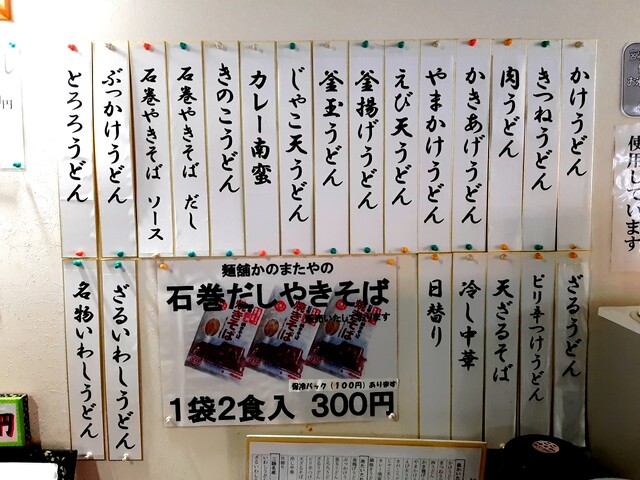 かけうどん
きつねうどん
肉うどん
かきあげうどん
やまかけうどん
えび天うどん
釜揚げうどん
釜玉うどん
じゃこ天うどん
カレー南蛮
きのこうどん
石巻やきそば だし
石巻やきそば ソース
ぶっかけうどん
とろろうどん
ざるうどん
ピリ辛つけうどん
天ざるそば
冷し中華
日替り
麺舗かのまたやの
石巻だしやきそば
いたします
保冷パック(100円)あります
1袋2食入 300円
ざるいわしうどん
名物いわしうどん
使用しています
円
円